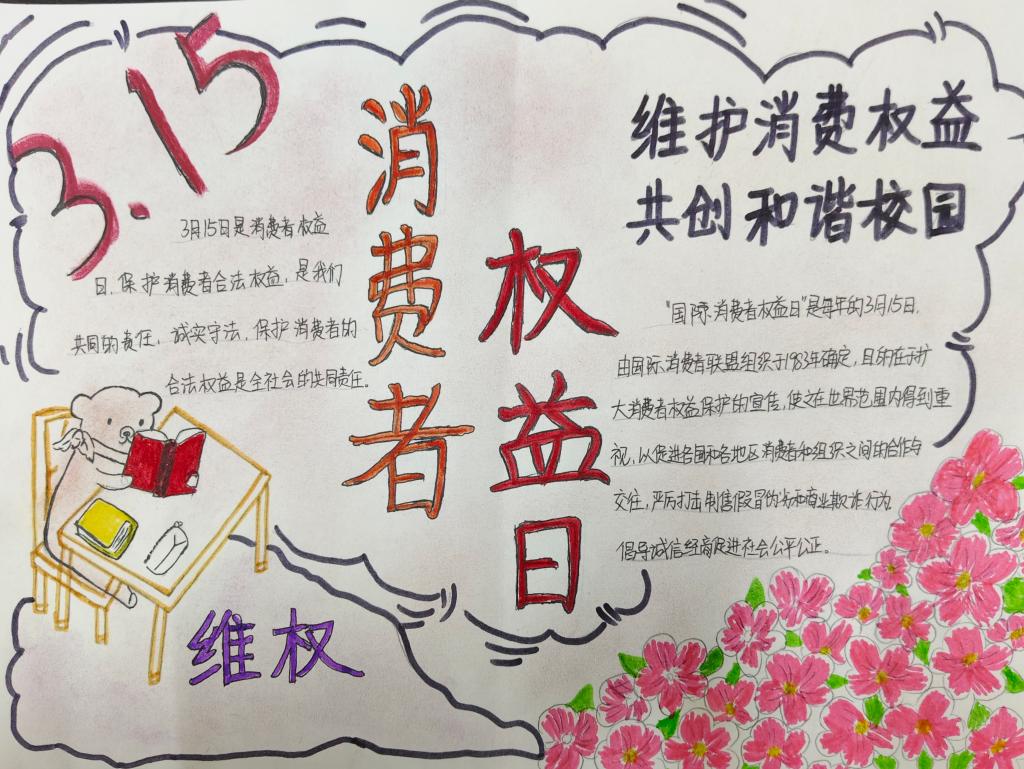 3.15
消费者
权益日
维护消费权益
共创和谐校园
3月15日是消费者权益
日,保护消费者合法权益,是我们
共同的责任,诚实守法,保护消费者的
合法权益是全社会的共同责任。
“国际消费者权益日”是每年的3月15日,
由国际消费者联盟组织于1983年确定,目的在于扩
大消费者权益保护的宣传,使之在世界范围内得到重
视,以促进各国和各地区消费者和组织之间的合作与
交往,严厉打击制售假冒伪劣和商业欺诈行为
倡导诚信经商促进社会公平公正。
维权